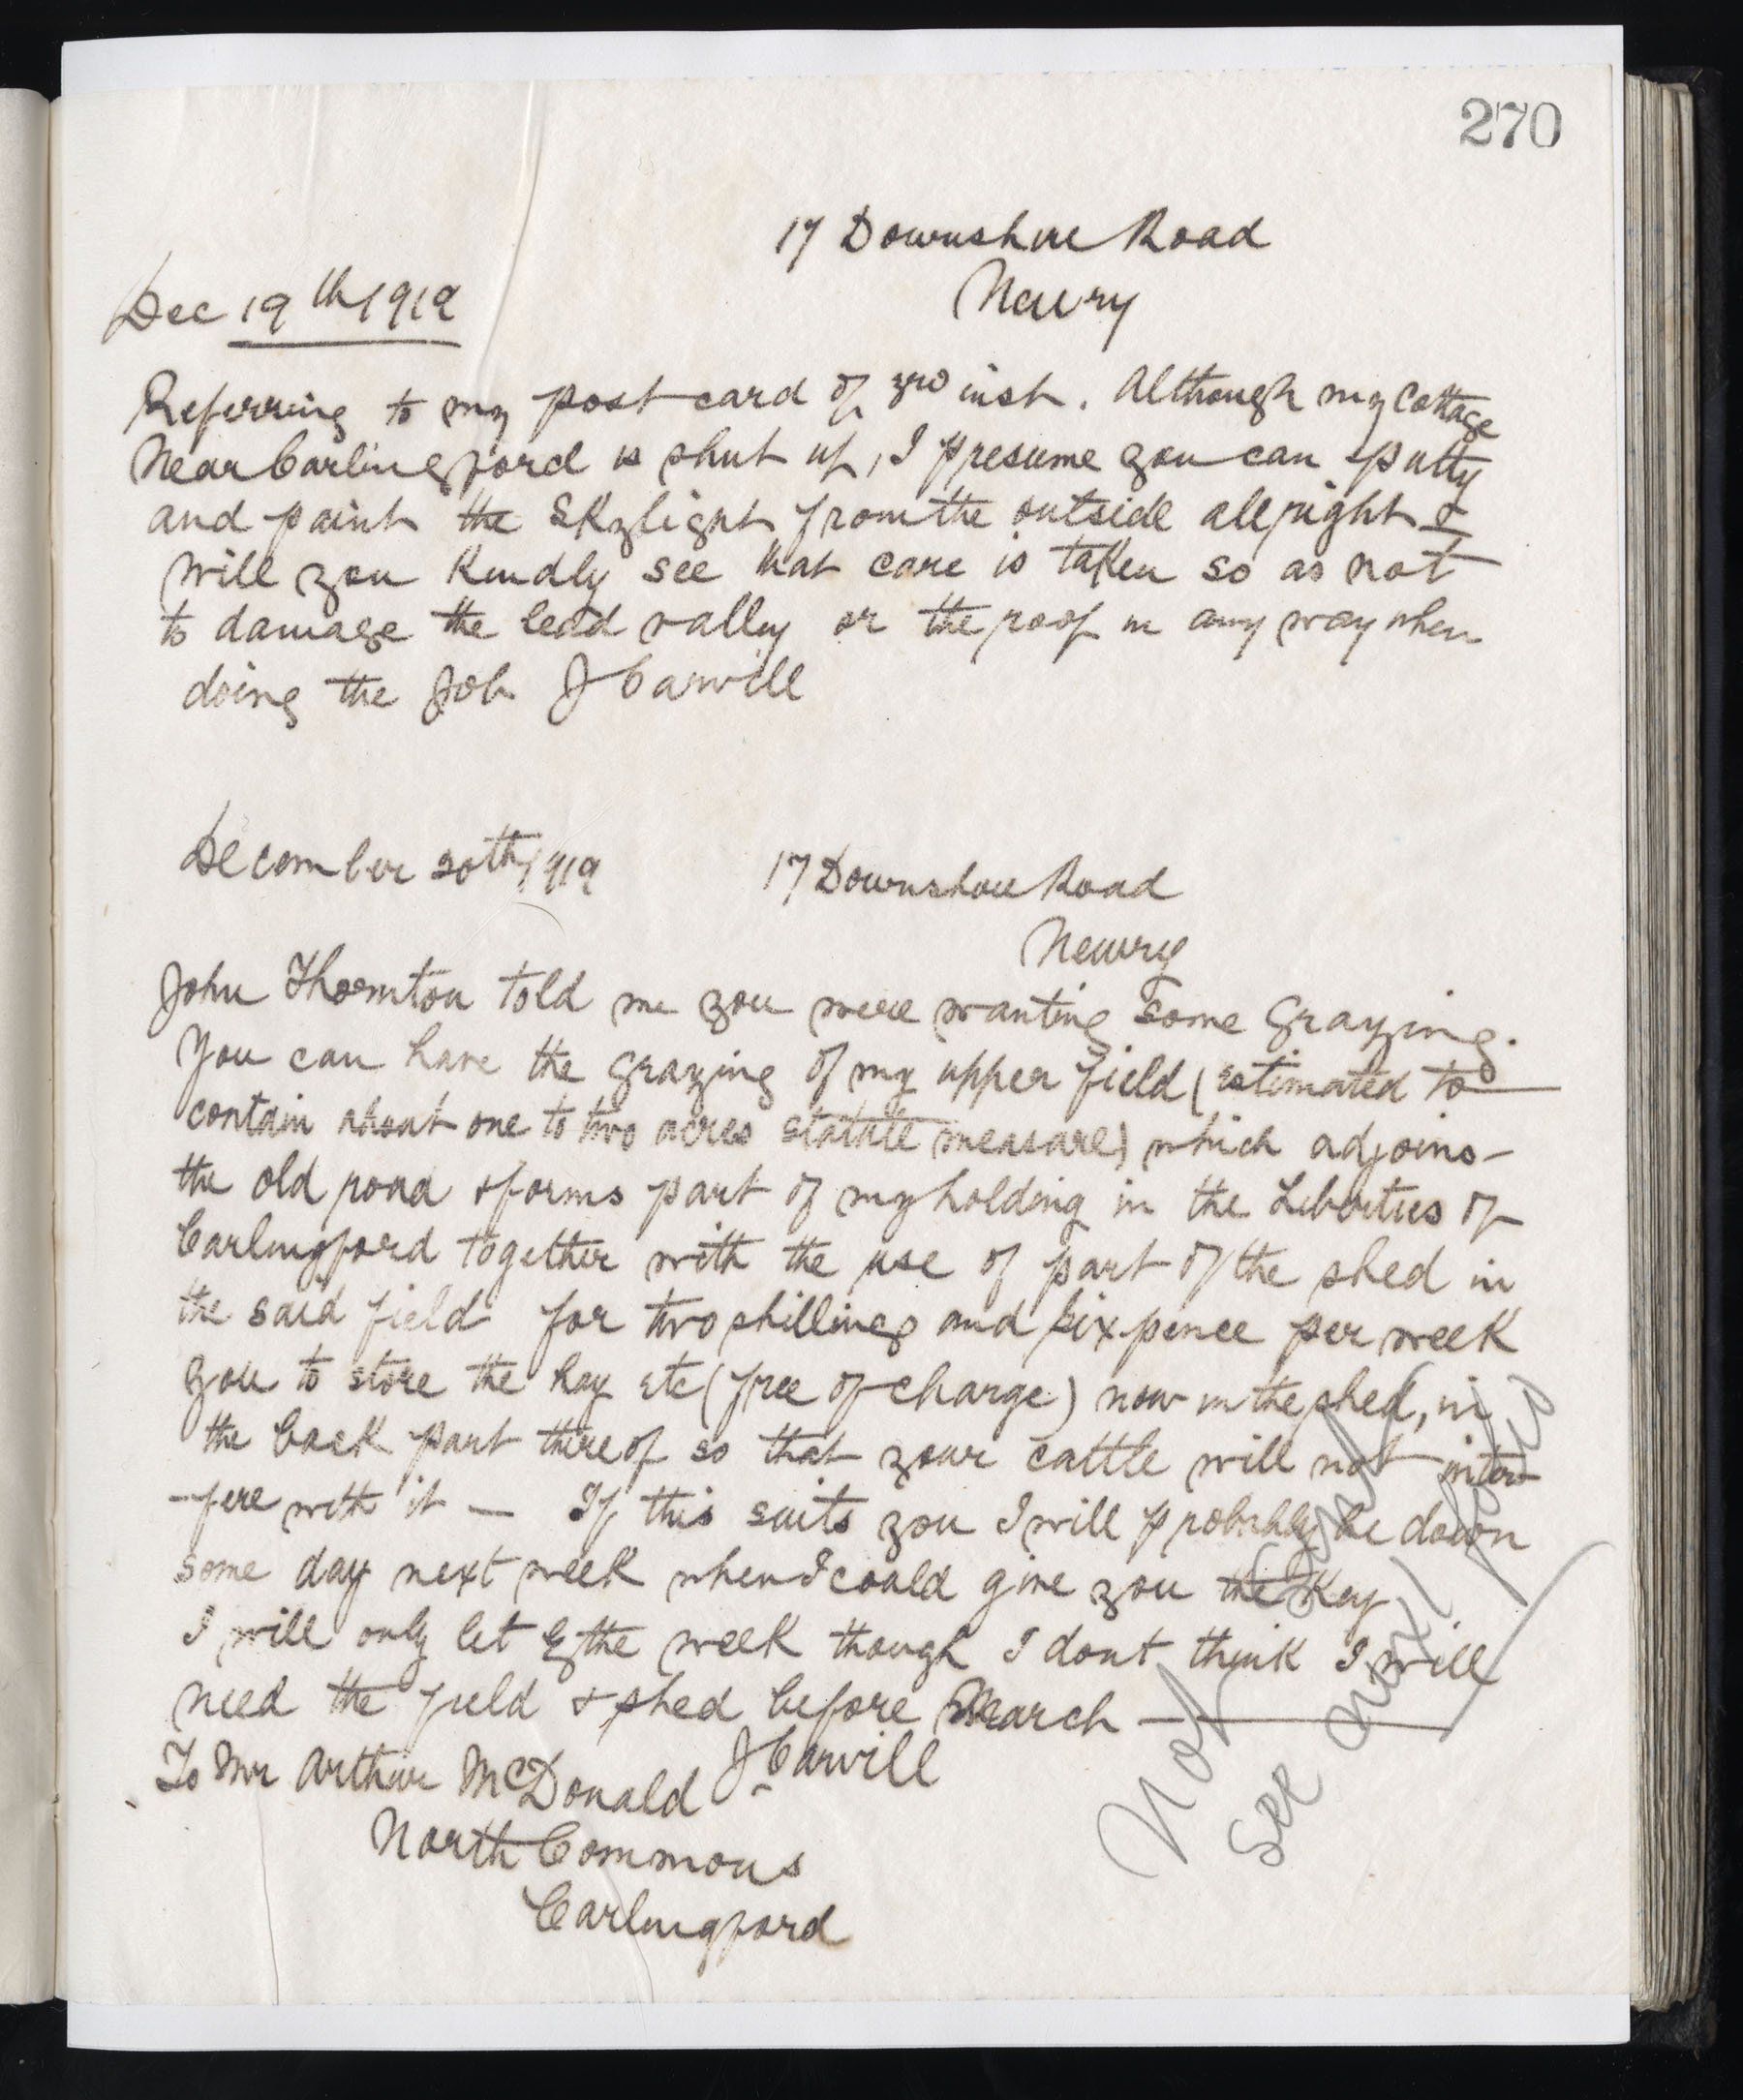 270
17 Downshire Road
Newry
Dec 19th 1919
Referring to my post card of 3rd inst. Although my cottage
Near Carlingford is shut up, I presume you can putty
and paint the skylight from the outside all right &
will you kindly see that care is taken so as not
to damage the lead valley or the roof in any way when
doing the job J Carvill
December 20th 1919
17 Downshire Road
Newry
John Thornton told me you were wanting some grazing.
You can have the grazing of my upper field (estimated to
contain about one to two acres statute measure) which adjoins
the old road & forms part of my holding in the Liberties of
Carlingford together with the use of part of the shed in
the said field for two shillings and sixpence per week
you to store the hay etc (free of charge) now in the shed, in
the back part thereof so that your cattle will not inter
-fere with it — If this suits you I will probably be down
some day next week when I could give you the key
I will only let by the week though I dont think I will
need the field & shed before March —
J Carvill
To Mr Arthur McDonald
North Commons
Carlingford
Not
See next